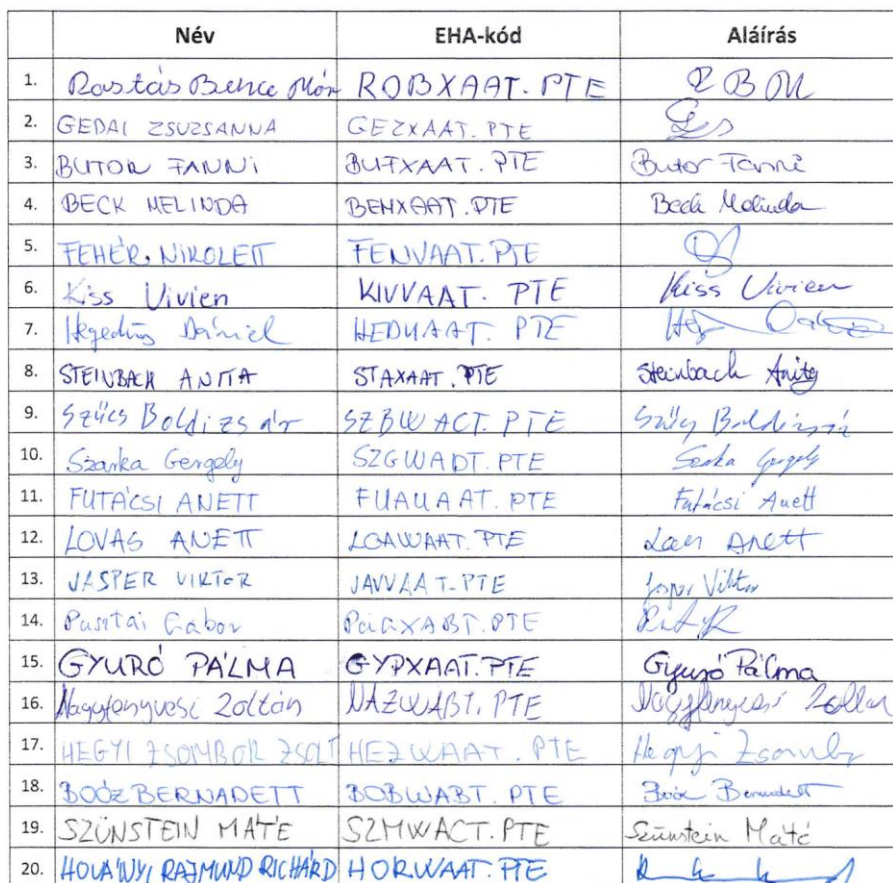 Név EHA-kód Aláírás
1. Rostás Bence Món ROBXAAT. PTE RBM
2. GEDAI ZSUZSANNA GEZXAAT. PTE
3. BUTOR FANNI BUFXAAT. PTE Butor Fanni
4. BECK MELINDA BEMXAAT. PTE Beck Melinda
5. FEHÉR NIKOLETT FENVAAT. PTE
6. Kiss Vivien KIVVAAT. PTE Kiss Vivien
7. Hegedűs Dániel HEDUAAT. PTE
8. STEINBACH ANITA STAXAAT. PTE Steinbach Anita
9. Szűcs Boldizsár SZBWACT. PTE Szűcs Boldizsár
10. Szarka Gergely SZGWADT. PTE Szarka Gergely
11. FUTÁCSI ANETT FUAUAAT. PTE Futácsi Anett
12. LOVAS ANETT LOAWAAT. PTE Anett
13. JASPER VIKTOR JAVVAAT. PTE Jasper Viktor
14. Pusztai Gábor PUGXABT. PTE
15. GYURÓ PÁLMA GYPXAAT. PTE Gyuró Pálma
16. Nagyfenyvesi Zoltán NAZWABT. PTE Nagyfenyvesi Zoltán
17. HEGYI ZSOMBOR ZSOLT HEZWAAT. PTE Hegyi Zsombor
18. BOÓZ BERNADETT BOBWABT. PTE Boóz Bernadett
19. SZÜNSTEIN MÁTÉ SZMWACT. PTE Szünstein Máté
20. HOLVÁNYI RAJMUND RICHÁRD HORWAAT. PTE